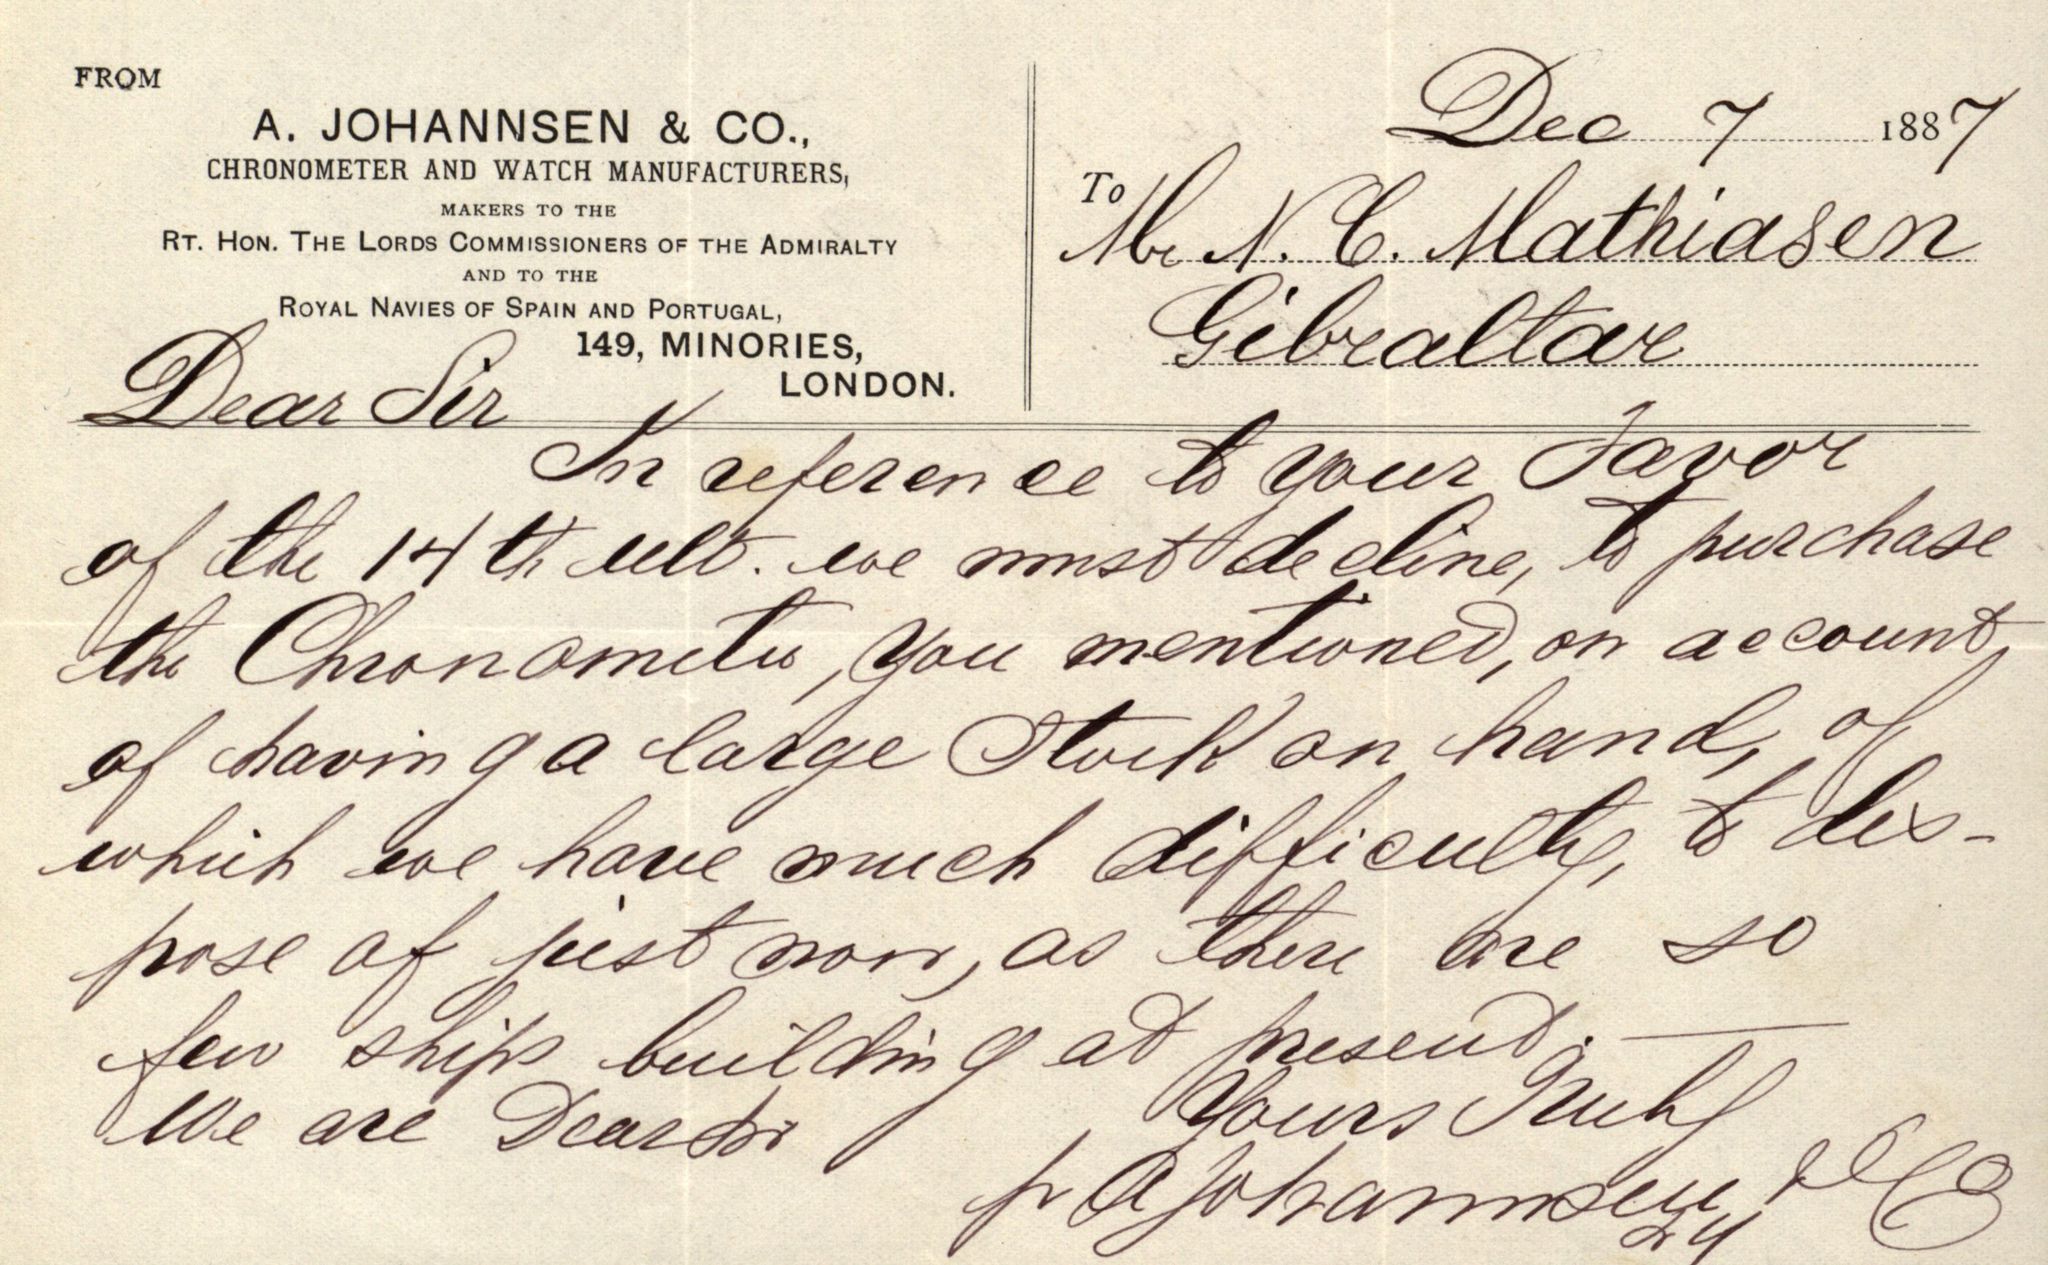 FROM
A. JOHANNSEN & CO.,
CHRONOMETER AND WATCH MANUFACTURERS,
MAKERS TO THE
RT. HON. THE LORDS COMMISSIONERS OF THE ADMIRALTY
AND TO THE
ROYAL NAVIES OF SPAIN AND PORTUGAL,
149, MINORIES,
LONDON.
Dec 7 1887
To
Mr N. C. Mathiasen
Gibraltar
Dear Sir
In reference to your Favor
of the 14th ult. we must decline, to purchase
the Chronometer, you mentioned, on account,
of having a large Stock on hand, of
which we have much difficulty, to dis-
pose of just now, as there are so
few ships building at present. —
We are Dear Sir
Yours Truly
pr A Johannsen & Co